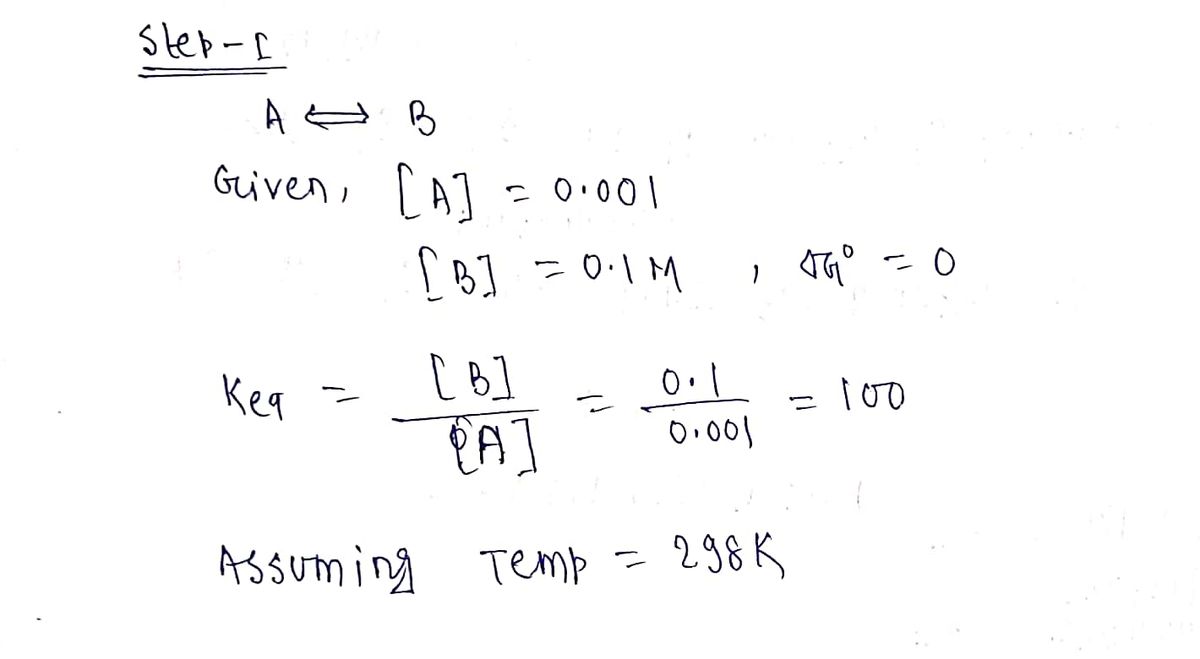 Step-I
A ⟺ B
Given, [A] = 0.001
[B] = 0.1 M , ΔG° = 0
Keq = [B] / [A] = 0.1 / 0.001 = 100
Assuming Temp = 298K